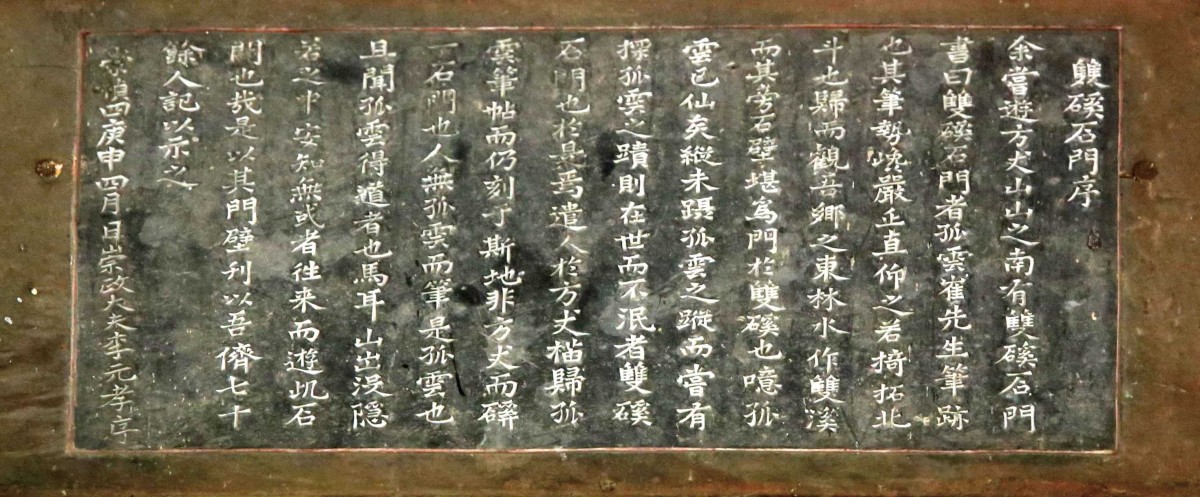 雙磎石門序
余嘗遊方丈山山之南有雙磎石門
書曰雙磎石門者孤雲崔先生筆跡
也其筆勢峻嚴正直仰之若掎拓北
斗也歸而觀吾鄉之東林水作雙溪
而其旁石壁堪爲門於雙磎也噫孤
雲已仙矣縱未躡孤雲之蹤而嘗有
探孤雲之蹟則在世而不泯者雙磎
石門也於是焉遣人於方丈榻歸孤
雲筆帖而仍刻于斯地非方丈而磎
一石門也人無孤雲而筆是孤雲也
且聞孤雲得道者也馬耳山出沒隱
若之中安知無或者往来而遊此石
門也哉是以其門壁刊以吾儕七十
餘人記以示之
崇禎四庚申四月日崇政大夫李元孝序